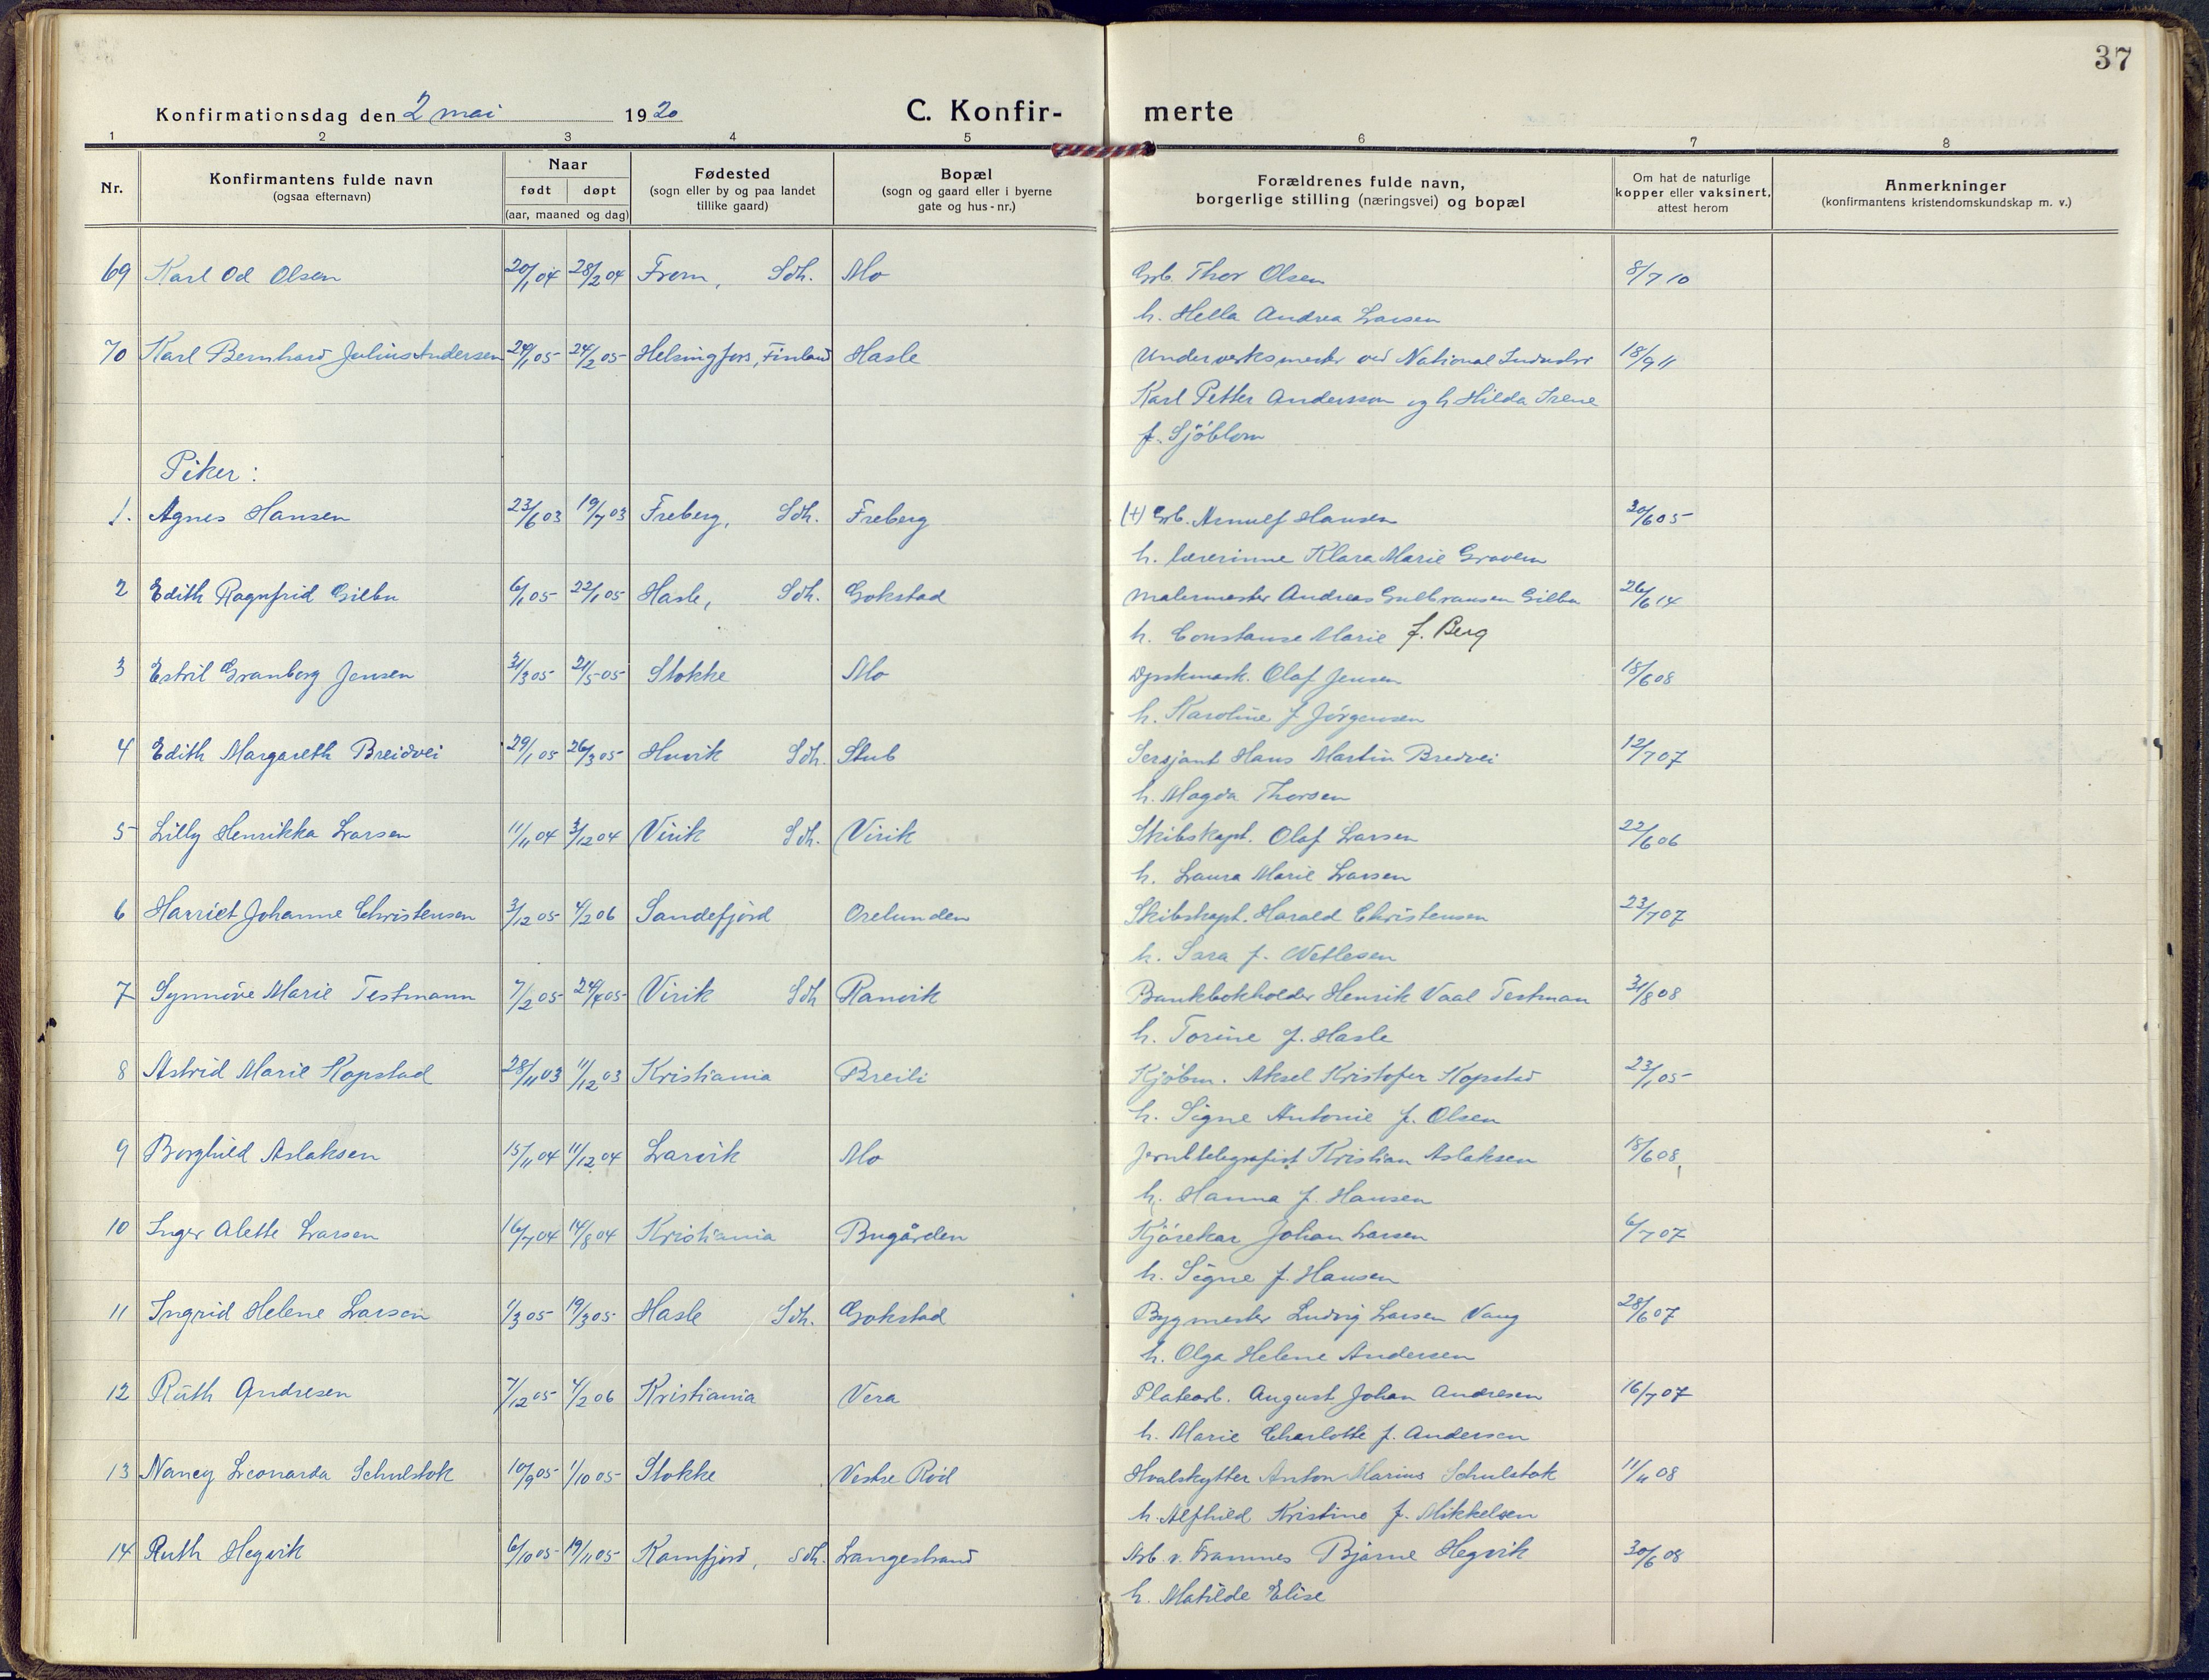 37
Konfirmationsdag den 2 mai 1920 C. Konfir- merte
1 2 3 4 5 6 7 8
Nr. Konfirmantens fulde navn (ogsaa efternavn) Naar født døpt (aar, maaned og dag) Fødested (sogn eller by og paa landet tillike gaard) Bopæl (sogn og gaard eller i byerne gate og hus-nr.) Forældrenes fulde navn, borgerlige stilling (næringsvei) og bopæl Om hat de naturlige kopper eller vaksinert, attest herom Anmerkninger (konfirmantens kristendomskundskap m. v.)
69 Karl Od Olsen 20/1 04 28/2 04 From, Sdh. Mo Grb. Thor Olsen 8/7 10
h. Hella Andrea Larsen
70 Karl Bernhard Julius Andersen 24/1 05 24/2 05 Helsingfors, Finland Hasle Underverksmester ved National Industri 18/9 11
Karl Petter Andersson og h. Hilda Irene
f. Sjöblom
Piker:
1. Agnes Hansen 23/6 03 19/7 03 Freberg, Sdh. Freberg (+) Grb. Arnulf Hansen 30/6 05
h. lærerinne Klara Marie Gravem
2 Edith Ragnfrid Gilbu 6/1 05 22/1 05 Hasle, Sdh. Gokstad Malermester Andreas Gulbransen Gilbu 26/6 14
h. Constanse Marie f. Berg
3 Estril Granberg Jensen 31/3 05 21/5 05 Stokke Mo Olaf Jensen 18/6 08
h. Karoline f Jörgensen
4 Edith Margareth Breidvei 29/1 05 26/3 05 Huvik Sdh. Stub Sersjant Hans Martin Bredvei 12/7 07
h. Magda Thorsen
5 Lilly Henrikka Larsen 11/11 04 3/12 04 Virik Sdh. Virik Skibskapt. Olaf Larsen 22/6 06
h. Laura Marie Larsen
6 Harriet Johanne Christensen 3/12 05 4/2 06 Sandefjord Orelunden Skibskapt. Harald Christensen 23/7 07
h. Sara f. Wetlesen
7 Synnöve Marie Testmann 7/2 05 24/4 05 Virik Sdh Ranvik Bankbokholder Henrik Vaal Testman 31/8 08
h. Torine f. Hasle
8 Astrid Marie Kopstad 28/11 03 11/12 03 Kristiania Breili Kjöbm. Aksel Kristofer Kopstad 23/1 05
h. Signe Antonie f. Olsen
9 Borghild Aslaksen 15/11 04 11/12 04 Larvik Mo Jernbtelegrafist Kristian Aslaksen 18/6 08
h. Hanna f. Hansen
10 Inger Alette Larsen 16/7 04 14/8 04 Kristiania Bugården Kjörekar Johan Larsen 6/7 07
h. Signe f. Hansen
11 Ingrid Helene Larsen 1/3 05 19/3 05 Hasle Sdh. Gokstad Bygmester Ludvig Larsen Vang 28/6 07
h. Olga Helene Andersen
12 Ruth Andresen 7/12 05 4/2 06 Kristiania Vera Platearb. August Johan Andresen 16/7 07
h. Marie Charlotte f. Andersen
13 Nancy Leonarda Schulstok 10/9 05 1/10 05 Stokke Vestre Röd Hvalskytter Anton Marius Schulstok 11/11 08
h. Alfhild Kristine f. Mikkelsen
14 Ruth Hegvik 6/10 05 19/11 05 Kamfjord, Sdh. Langestrand Arb. v. Framnes Bjarne Hegvik 30/6 08
h. Matilde Elise